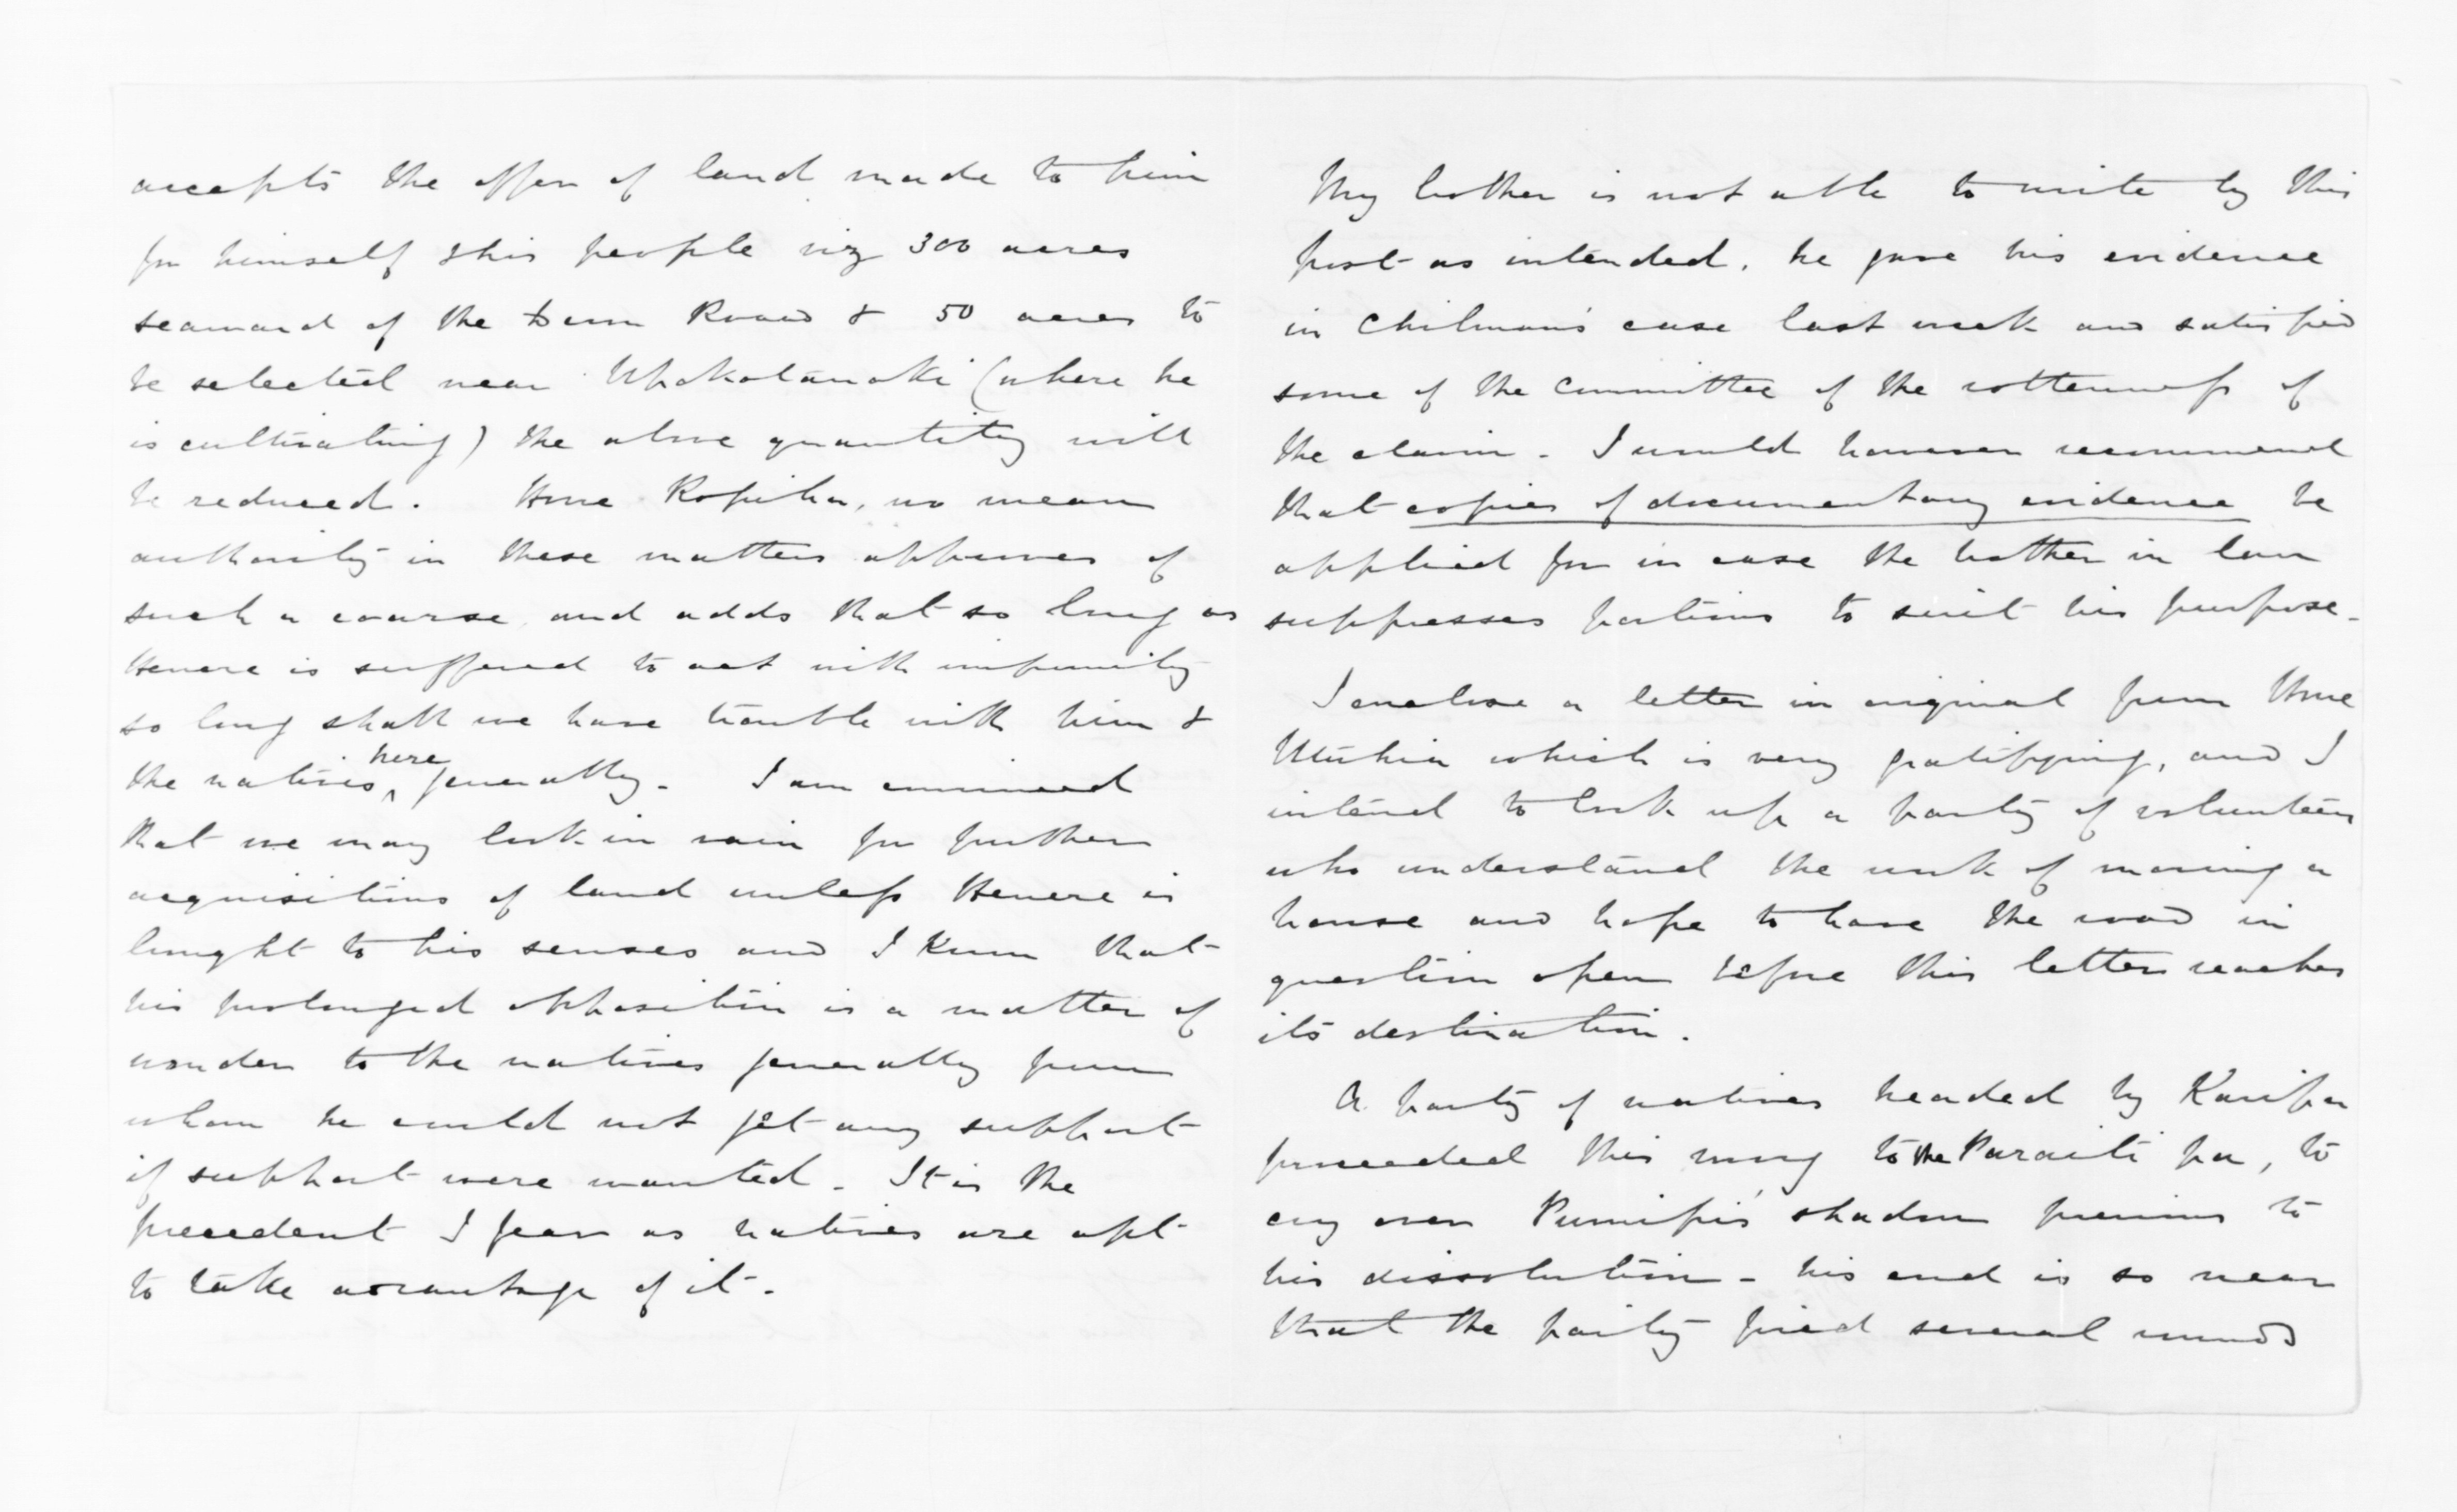 accepts the offer of land made to him
for himself & his people viz 300 acres
seaward of the Devon Road & 50 acres to
be selected near Whakatanaki (where he
is cultivating) the above quantity will
be reduced. Hone Ropiha, no mean
authority in these matters approves of
such a coarse and adds that so long as
Henere is suffered to act with impunity
so long shall we have trouble with him &
the natives here generally. I am convinced
that we may look in vain for further
acquisitions of land unless Henere is
brought to his senses and I know that
his prolonged opposition is a matter of
wonder to the natives generally from
whom he could not get any support
if support were wanted. It is the
precedent I fear as natives are apt
to take advantage of it.
My brother is not able to write by this
post as intended. he gave his evidence
in Chilman's case last week and satisfied
some of the Committee of the rottenness of
the claim. I would however recommend
that copies of documentary evidence be
applied for in case the brother in law
suppresses portions to suit his purpose.
I enclose a letter in original from Hone
which is very gratifying, and I
intend to look up a party of volunteers
who understand the work of moving a
house and hope to have the road in
question open before this letter reaches
its destination.
A party of natives headed by Karipa
proceeded this morng to the Paraiti pa, to
cry over Pumipi's shadow previous to
his dissolution - his end is so near
that the party fired several rounds